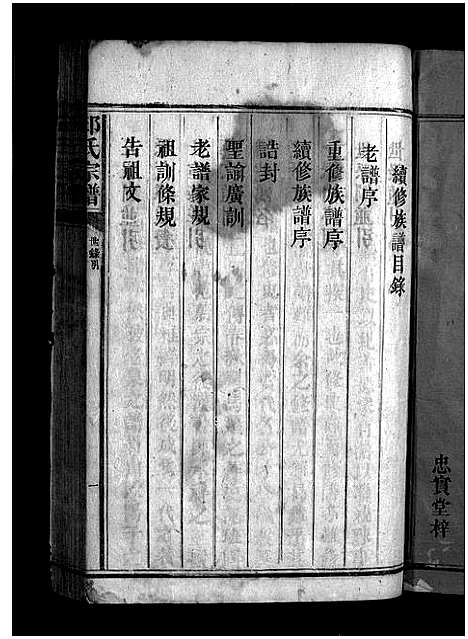 忠實堂梓
續修族譜目錄
老譜序
重修族譜序
續修族譜序
誥封
聖諭廣訓
老譜家規
祖訓條規
告祖文
氏宗譜
一